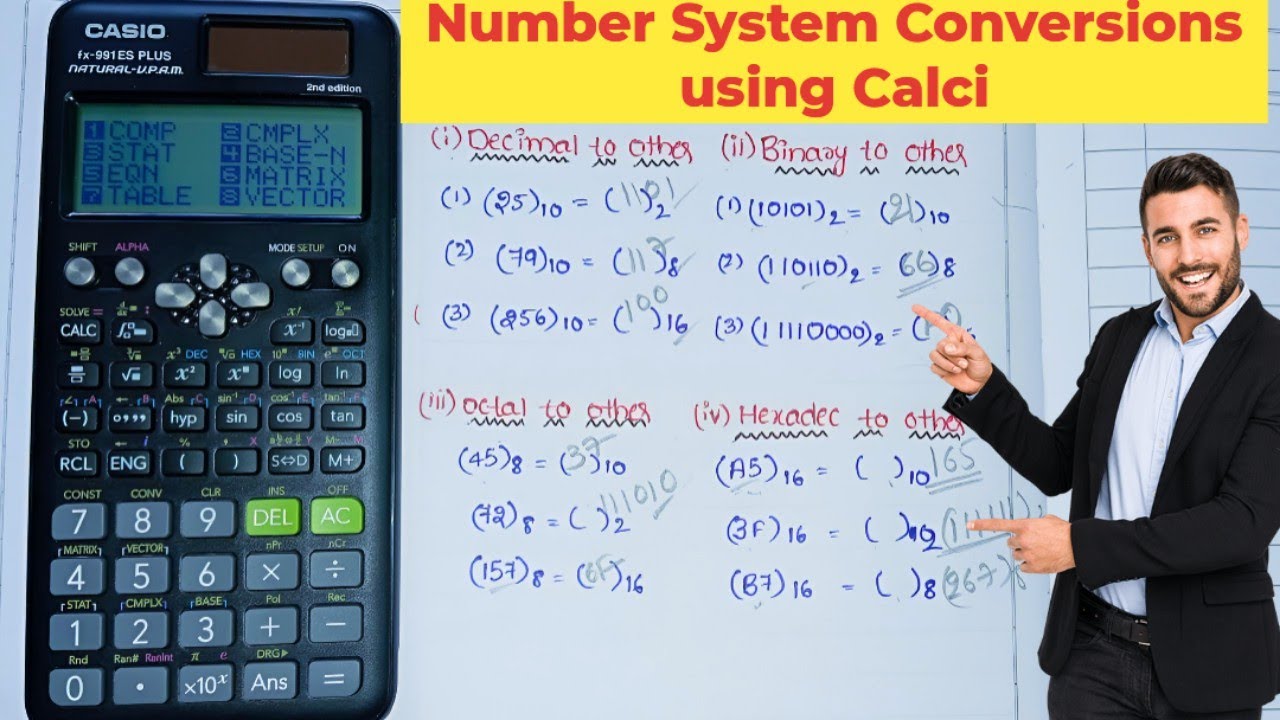 Number System Conversions
using Calci
CASIO
fx-991ES PLUS
NATURAL-V.P.A.M.
2nd edition
1 COMP 2 CMPLX
3 STAT 4 BASE-N
5 EQN 6 MATRIX
7 TABLE 8 VECTOR
SHIFT ALPHA MODE SETUP ON
SOLVE = x! Σ-
CALC x⁻¹ log
x³ DEC HEX 10ˣ BIN eˣ OCT
√ x² log ln
A B Abs C sin⁻¹ D cos⁻¹ E tan⁻¹ F
(−) hyp sin cos tan
STO ← i % , X Y M− M
RCL ENG ( ) S⇔D M+
CONST CONV CLR INS OFF
7 8 9 DEL AC
MATRIX VECTOR nPr nCr
4 5 6 × ÷
STAT CMPLX BASE Pol Rec
1 2 3 + −
Rnd Ran# RanInt π e DRG▶
0 . ×10ˣ Ans =
(i) Decimal to other
(1) (25)10 = ( )2
(2) (79)10 = (117)8
(3) (256)10 = (100)16
(ii) Binary to other
(1) (10101)2 = (21)10
(2) (110110)2 = (66)8
(3) (11110000)2 = (
(iii) octal to other
(45)8 = (37)10
(72)8 = ( )2 111010
(157)8 = (6F)16
(iv) Hexadec to other
(A5)16 = ( )10 165
(3F)16 = ( )2
(B7)16 = ( )8 (267)8